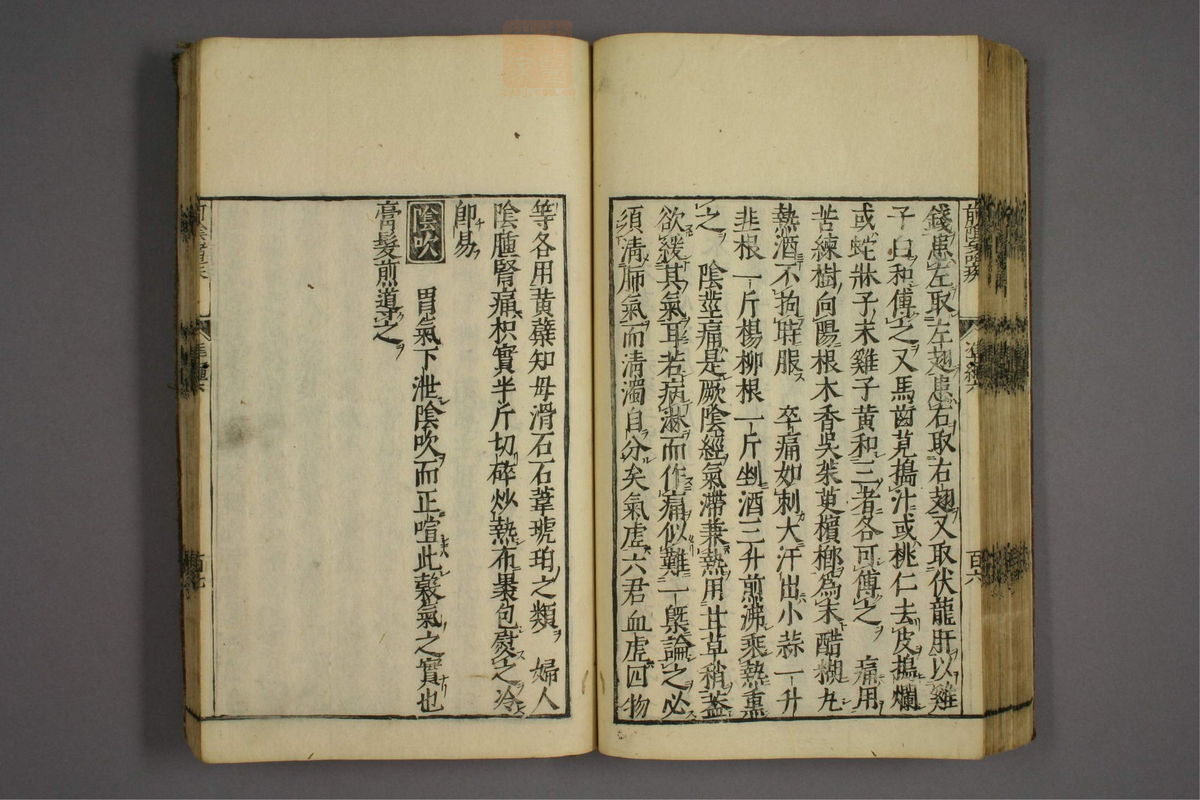 錢患左取左翅患右取右翅又取伏龍肝以雞
子白和傅之又馬齒莧搗汁或桃仁去皮搗爛
或蛇牀子末雞子黄和三者各可傅之 痛用
苦練樹向陽根木香吳茱萸檳榔為末醋糊丸
熱酒不拘時服 卒痛如刺大汗出小蒜一升
韭根一斤楊柳根一斤剉酒三升煎沸乘熱熏
之 陰莖痛是厥陰經氣滯兼熱用甘草稍蓋
欲緩其氣耳若病淋而作痛似難一槩論之必
須清肺氣而清濁自分矣氣虛六君血虛四物
等各用黄蘗知母滑石石葦琥珀之類 婦人
陰腫腎痛枳實半斤切碎炒熱布裹包熨之冷
即易
陰吹 胃氣下泄陰吹而正喧此穀氣之實也
膏髮煎導之
百六